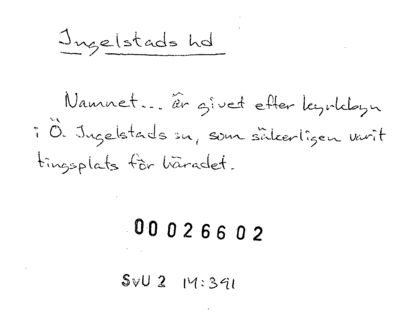 Ingelstads hd
Namnet... är givet efter kyrkbyn
i Ö. Ingelstads sn, som säkerligen varit
tingsplats för häradet.
00026602
SvU 2 14:391